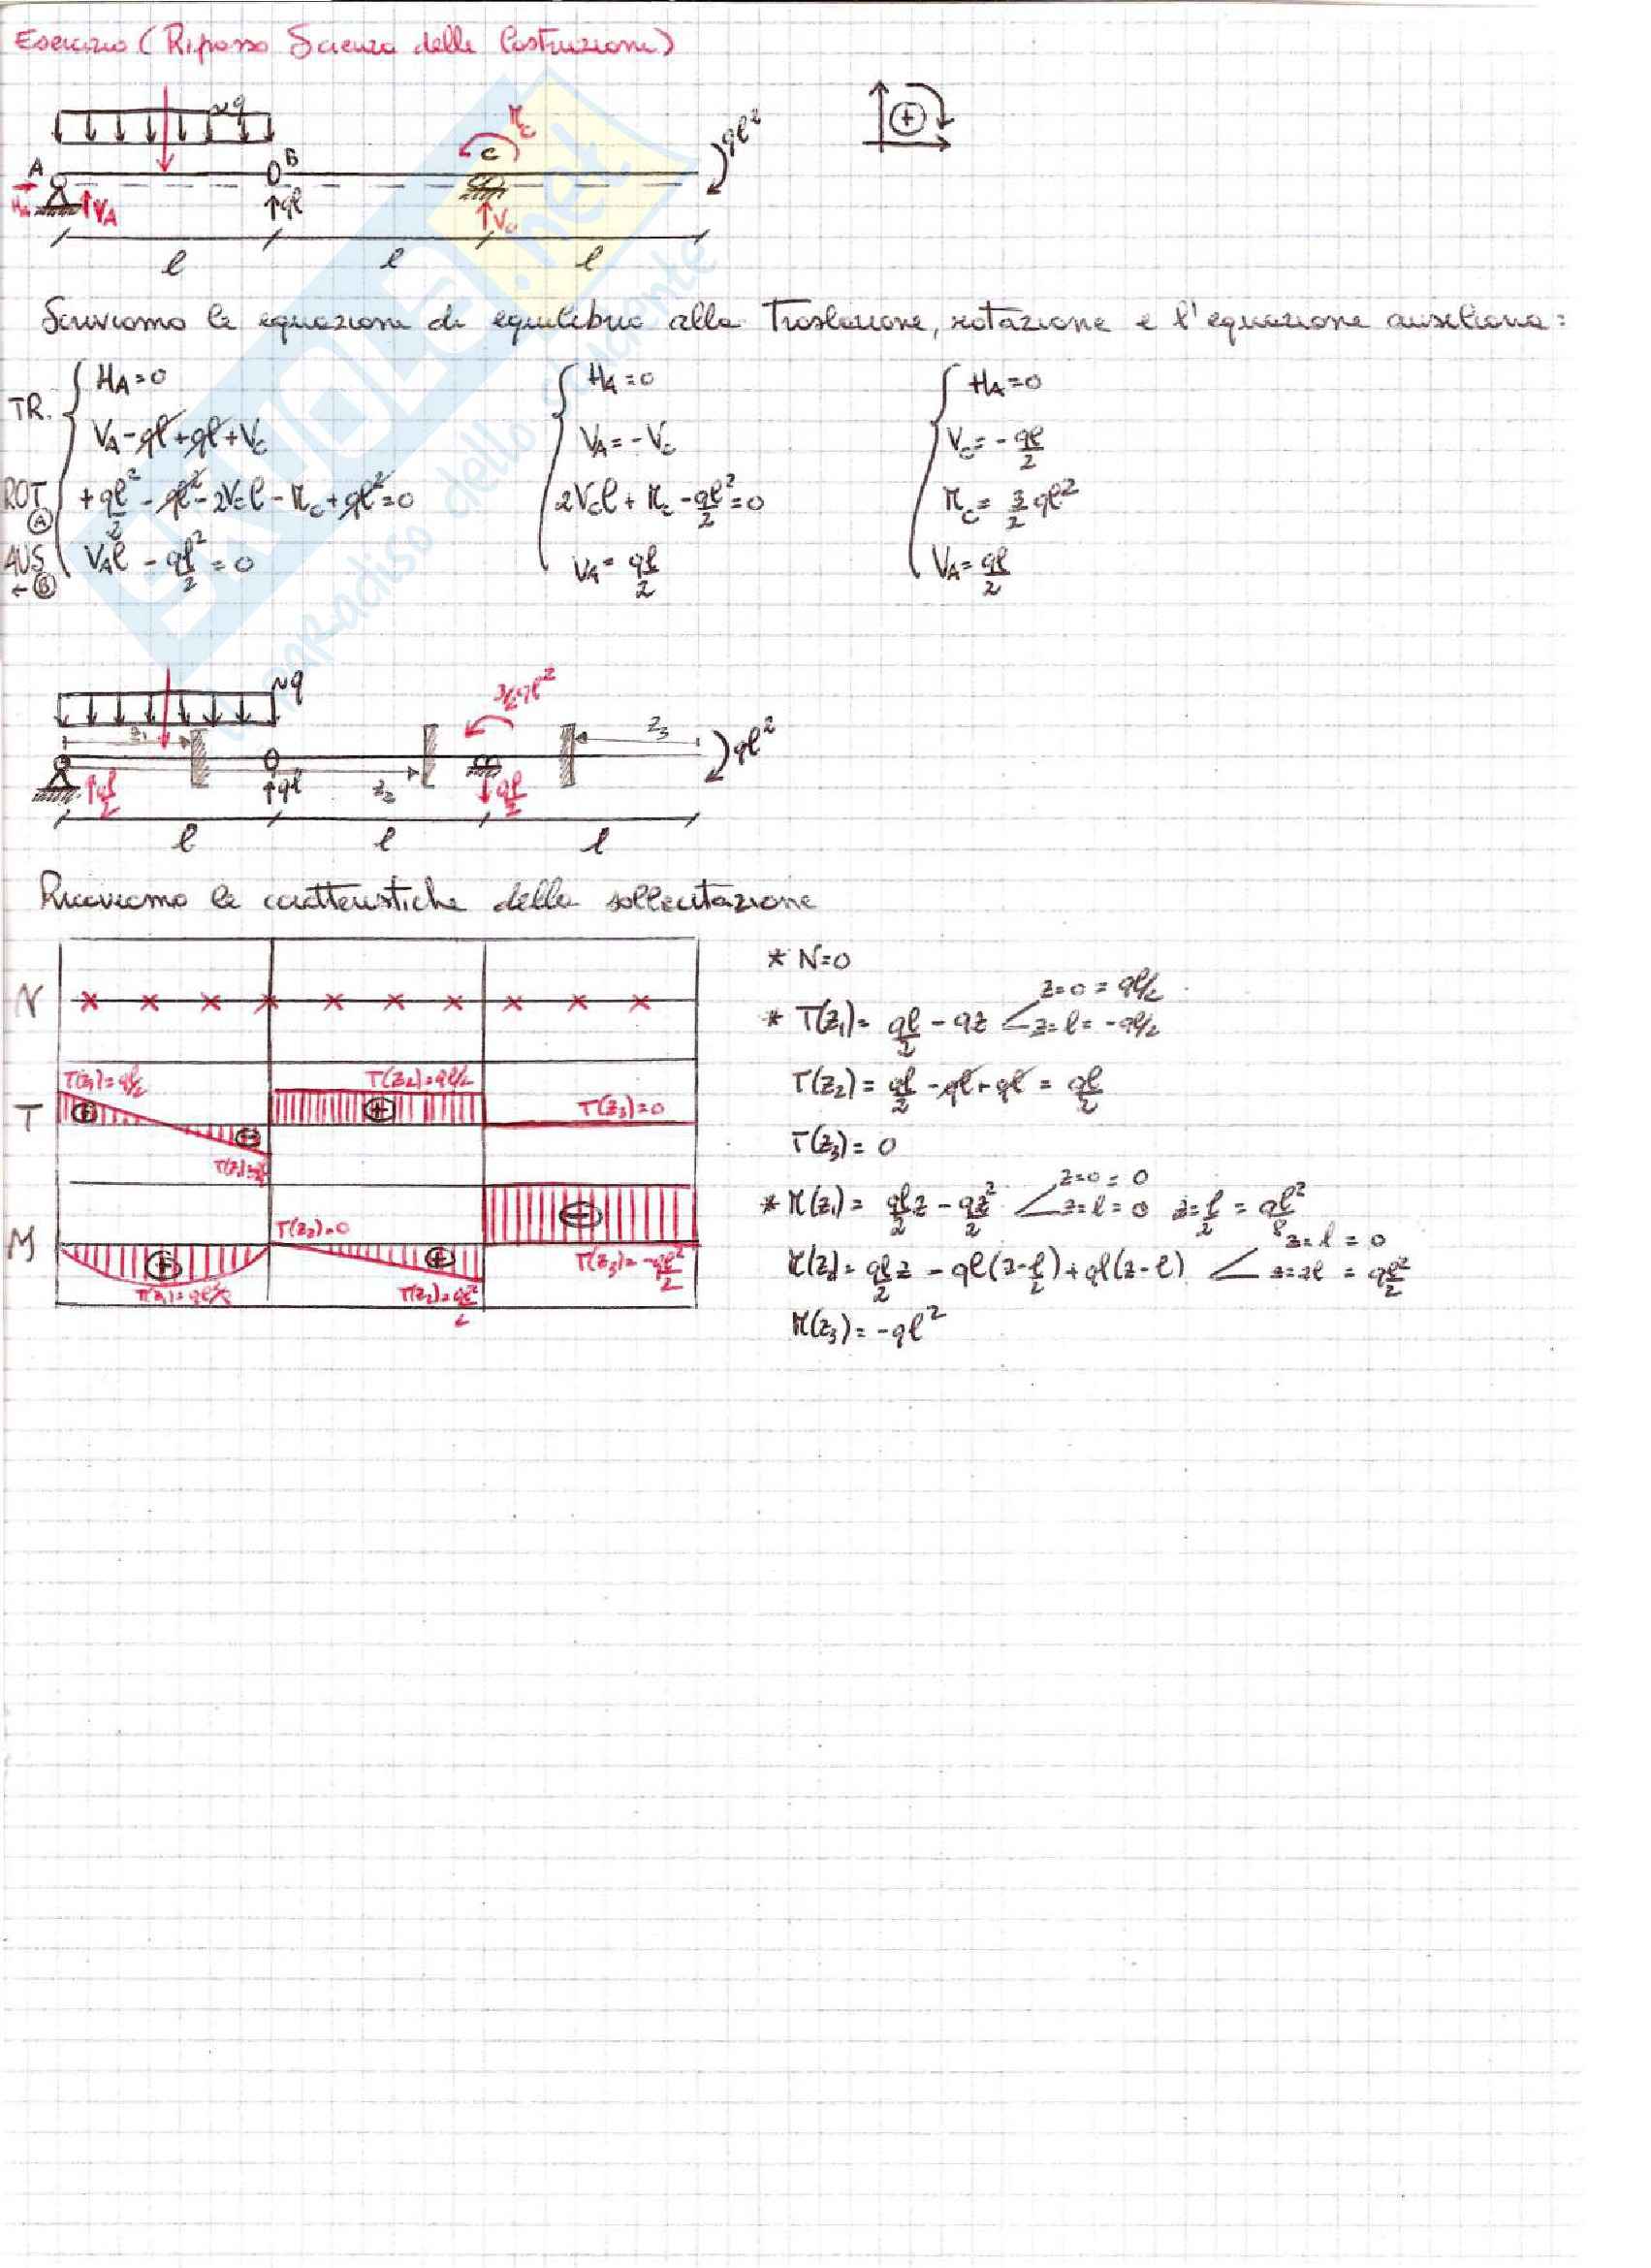 Esercizio (Ripasso Scienza delle Costruzioni)
q
A
B
C
M_C
ql²
+
H_A
V_A
ql
V_C
l
l
l
Scriviamo le equazioni di equilibrio alla Traslazione, rotazione e l'equazione ausiliaria:
TR. H_A=0
V_A-ql+ql+V_C
ROT A +ql²/2 - ql² - 2V_Cl - M_C + ql² = 0
AUS ←B V_Al - ql²/2 = 0
H_A=0
V_A=-V_C
2V_Cl + M_C - ql²/2 = 0
V_A = ql/2
H_A=0
V_C = -ql/2
M_C = 3/2 ql²
V_A = ql/2
q
3/2 ql²
z₁
z₃
ql²
ql/2
ql
z₂
ql/2
l
l
l
Ricaviamo le caratteristiche della sollecitazione
N
T
T(z₁)=ql/2
T(z₂)=ql/2
T(z₃)=0
+
-
+
M
T(z₂)=0
+
+
-
T(z₃)=-ql²/2
T(z₂)=ql²/2
* N=0
* T(z₁)= ql/2 - qz z=0 = ql/2
z=l = -ql/2
T(z₂)= ql/2 - ql + ql = ql/2
T(z₃)= 0
* M(z₁)= ql/2 z - qz²/2 z=0 = 0
z=l = 0 z=l/2 = ql²/8
M(z₂)= ql/2 z - ql(z-l/2)+ql(z-l) z=l = 0
z=2l = ql²/2
M(z₃)= -ql²
SKUOLA.net
il paradiso dello studente